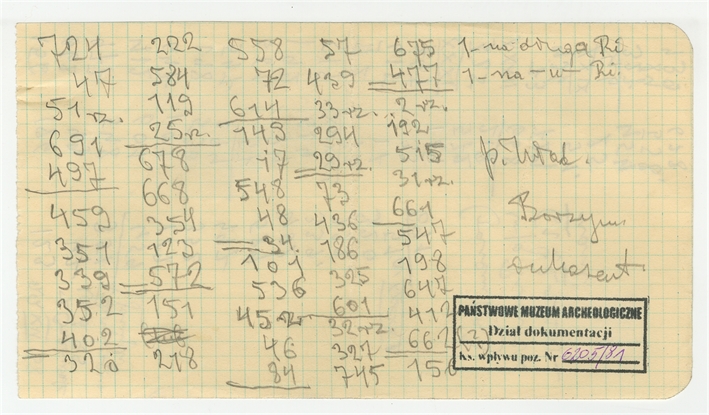 724
47
51 rz.
691
497
459
351
339
352
402
328
222
584
119
25 rz.
678
668
354
123
572
151
218
558
72
614
149
17
548
48
94
101
536
45 rz
46
84
57
439
33 rz.
294
29 rz.
73
436
186
325
601
32 rz.
327
745
675
477
2 rz.
192
515
31 rz.
661
547
198
647
412
662 (?)
15
1 - na drugą Ri
1 - na - u - Ri.
p. Wład.
Borzym
PAŃSTWOWE MUZEUM ARCHEOLOGICZNE
Dział dokumentacji
ks. wpływu poz. Nr 6205/81